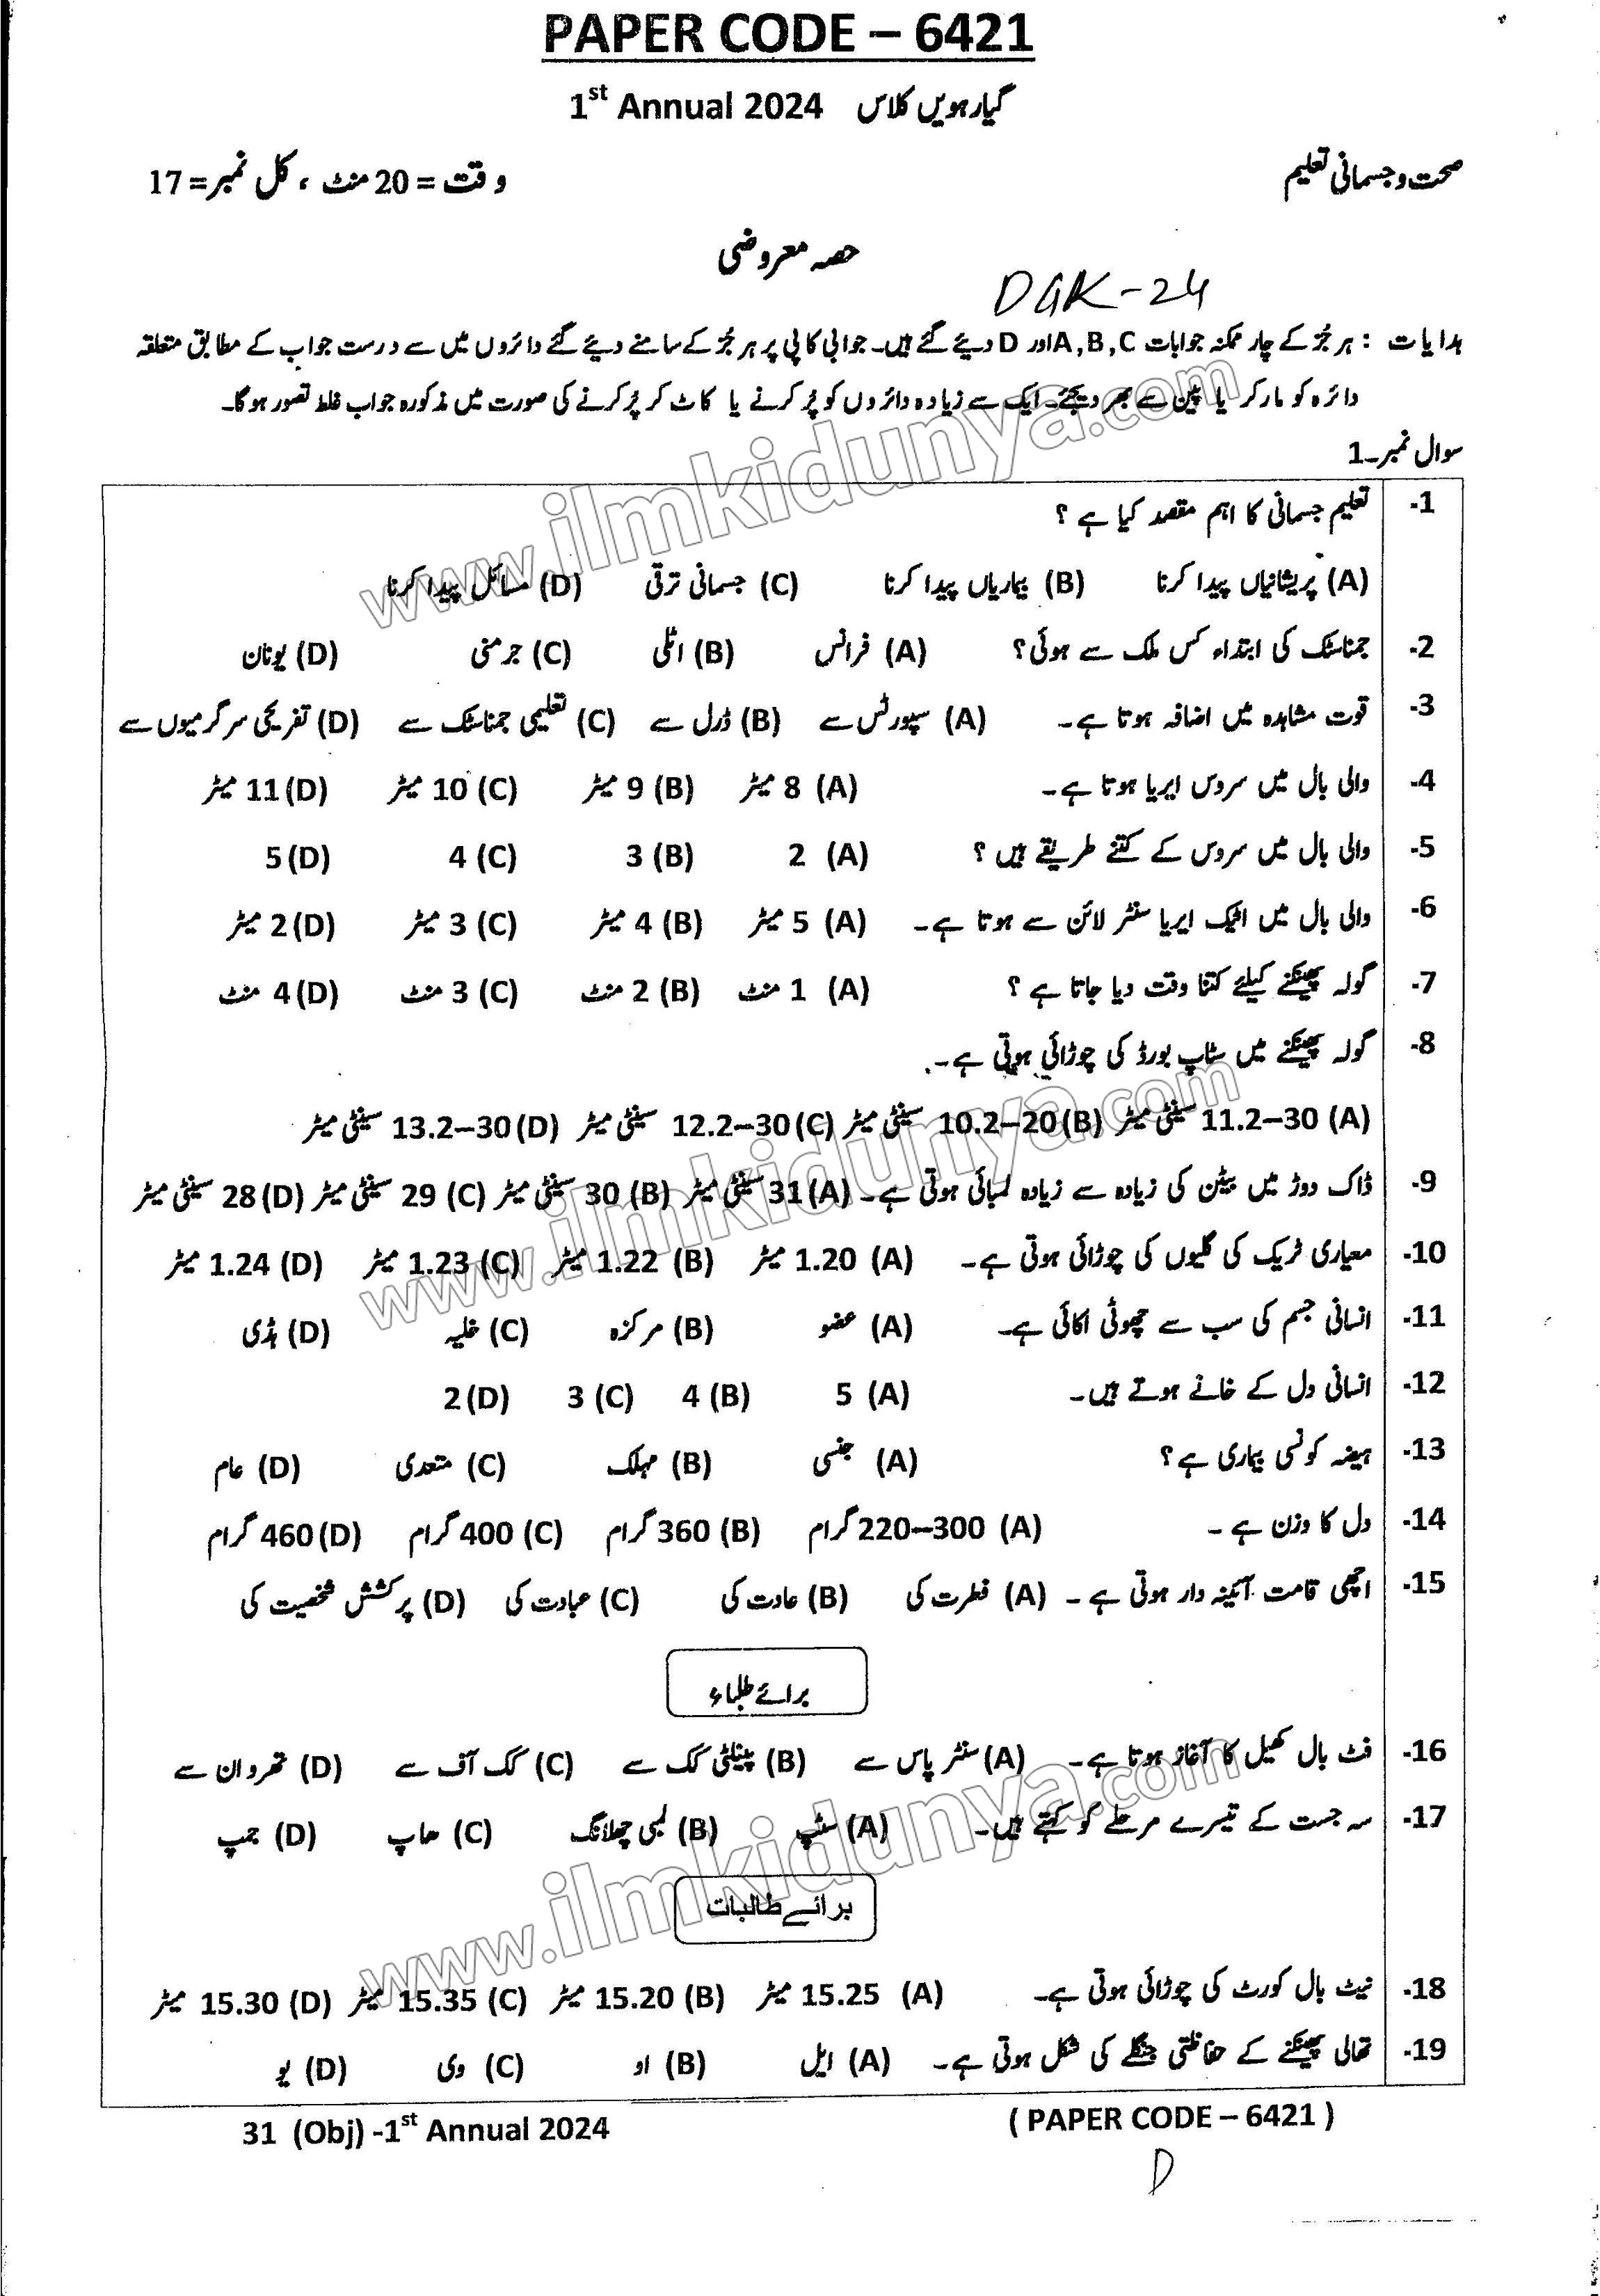 PAPER CODE – 6421
1st Annual 2024 گیارہویں کلاس
صحت و جسمانی تعلیم وقت = 20 منٹ ، کل نمبر = 17
حصہ معروضی
DGK-24
ہدایات : ہر جُز کے چار ممکنہ جوابات A,B,C اور D دیئے گئے ہیں۔ جوابی کاپی پر ہر جُز کے سامنے دیئے گئے دائروں میں سے درست جواب کے مطابق متعلقہ
دائرہ کو مارکر یا پین سے بھر دیجئے۔ ایک سے زیادہ دائروں کو پُر کرنے یا کاٹ کر پُر کرنے کی صورت میں مذکورہ جواب غلط تصور ہوگا۔
سوال نمبر۔1
1- تعلیم جسمانی کا اہم مقصد کیا ہے ؟
(A) پریشانیاں پیدا کرنا (B) بیماریاں پیدا کرنا (C) جسمانی ترقی (D) مسائل پیدا کرنا
2- جمناسٹک کی ابتداء کس ملک سے ہوئی؟ (A) فرانس (B) اٹلی (C) جرمنی (D) یونان
3- قوت مشاہدہ میں اضافہ ہوتا ہے۔ (A) سپورٹس سے (B) ڈرل سے (C) تعلیمی جمناسٹک سے (D) تفریحی سرگرمیوں سے
4- والی بال میں سروس ایریا ہوتا ہے۔ (A) 8 میٹر (B) 9 میٹر (C) 10 میٹر (D) 11 میٹر
5- والی بال میں سروس کے کتنے طریقے ہیں ؟ (A) 2 (B) 3 (C) 4 (D) 5
6- والی بال میں اٹیک ایریا سنٹر لائن سے ہوتا ہے۔ (A) 5 میٹر (B) 4 میٹر (C) 3 میٹر (D) 2 میٹر
7- گولہ پھینکنے کیلئے کتنا وقت دیا جاتا ہے ؟ (A) 1 منٹ (B) 2 منٹ (C) 3 منٹ (D) 4 منٹ
8- گولہ پھینکنے میں سٹاپ بورڈ کی چوڑائی ہوتی ہے۔
(A) 11.2–30 سینٹی میٹر (B) 10.2–20 سینٹی میٹر (C) 12.2–30 سینٹی میٹر (D) 13.2–30 سینٹی میٹر
9- ڈاک دوڑ میں بیٹن کی زیادہ سے زیادہ لمبائی ہوتی ہے۔ (A) 31 سینٹی میٹر (B) 30 سینٹی میٹر (C) 29 سینٹی میٹر (D) 28 سینٹی میٹر
10- معیاری ٹریک کی گلیوں کی چوڑائی ہوتی ہے۔ (A) 1.20 میٹر (B) 1.22 میٹر (C) 1.23 میٹر (D) 1.24 میٹر
11- انسانی جسم کی سب سے چھوٹی اکائی ہے۔ (A) عضو (B) مرکزہ (C) خلیہ (D) ہڈی
12- انسانی دل کے خانے ہوتے ہیں۔ (A) 5 (B) 4 (C) 3 (D) 2
13- ہیضہ کونسی بیماری ہے؟ (A) جنسی (B) مہلک (C) متعدی (D) عام
14- دل کا وزن ہے ۔ (A) 220–300 گرام (B) 360 گرام (C) 400 گرام (D) 460 گرام
15- اچھی قامت آئینہ دار ہوتی ہے ۔ (A) فطرت کی (B) عادت کی (C) عبادت کی (D) پرکشش شخصیت کی
برائے طلباء
16- فٹ بال کھیل کا آغاز ہوتا ہے۔ (A) سنٹر پاس سے (B) پینلٹی کک سے (C) کک آف سے (D) تھرو ان سے
17- سہ جست کے تیسرے مرحلے کو کہتے ہیں۔ (A) سٹپ (B) لمبی چھلانگ (C) ھاپ (D) جمپ
برائے طالبات
18- نیٹ بال کورٹ کی چوڑائی ہوتی ہے۔ (A) 15.25 میٹر (B) 15.20 میٹر (C) 15.35 میٹر (D) 15.30 میٹر
19- تھالی پھینکنے کے حفاظتی جنگلے کی شکل ہوتی ہے۔ (A) ایل (B) او (C) وی (D) یو
31 (Obj) -1st Annual 2024 ( PAPER CODE – 6421 )
D
www.ilmkidunya.com
www.ilmkidunya.com
www.ilmkidunya.com